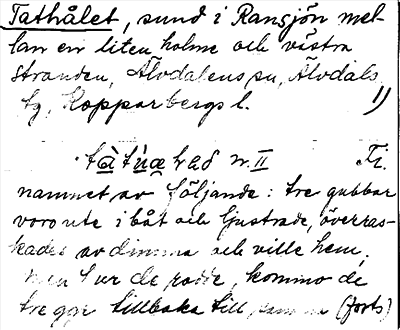 Tathålet, sund i Ransjön mel-
lan en liten holme och västra
stranden, Älvdalens sn, Älvdals
tg, Kopparbergs l. 1)
n. II Fr.
namnet av följande: tre gubbar
voro ute i båt och ljustrade, överras-
kades av dimma och ville hem,
men hur de rodde, kommo de
tre ggr tillbaka till samma (forts)